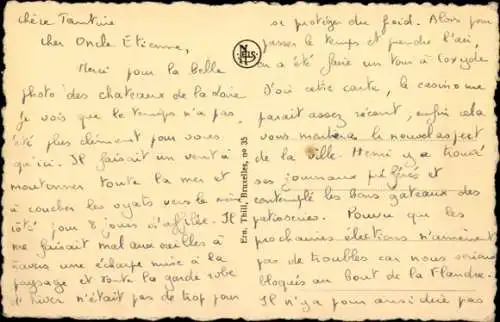 Chère Tantine
Cher Oncle Étienne,
Merci pour la belle
photo des chateaux de la Loire
je vois que le temps n'a pas
été plus clément pour vous
qu'ici. Il faisait un vent à
moutonner toute la mer et
à coucher les oyats vers le même
côté jour 8 jours d'affilée. Il
me faisait mal aux oreilles à
travers une écharpe mise à la
paysage et toute la garde robe
d'hiver n'était pas de trop pour
se protéger du froid. Alors pour
passer le temps et prendre l'air,
on a été faire un tour à
d'où cette carte, le casino me
parait assez récent, enfin cela
vous montrera le nouvel aspect
de la ville. Henri y a trouvé
ses journaux préférés et
contemplé les bons gateaux des
patisseries. Pourvu que les
prochaines élections n'amènent
pas de troubles car nous serions
bloqués au bout de la Flandre.
Il n'y a pour ainsi dire pas
NELS
Ern. Thill, Bruxelles, no 35